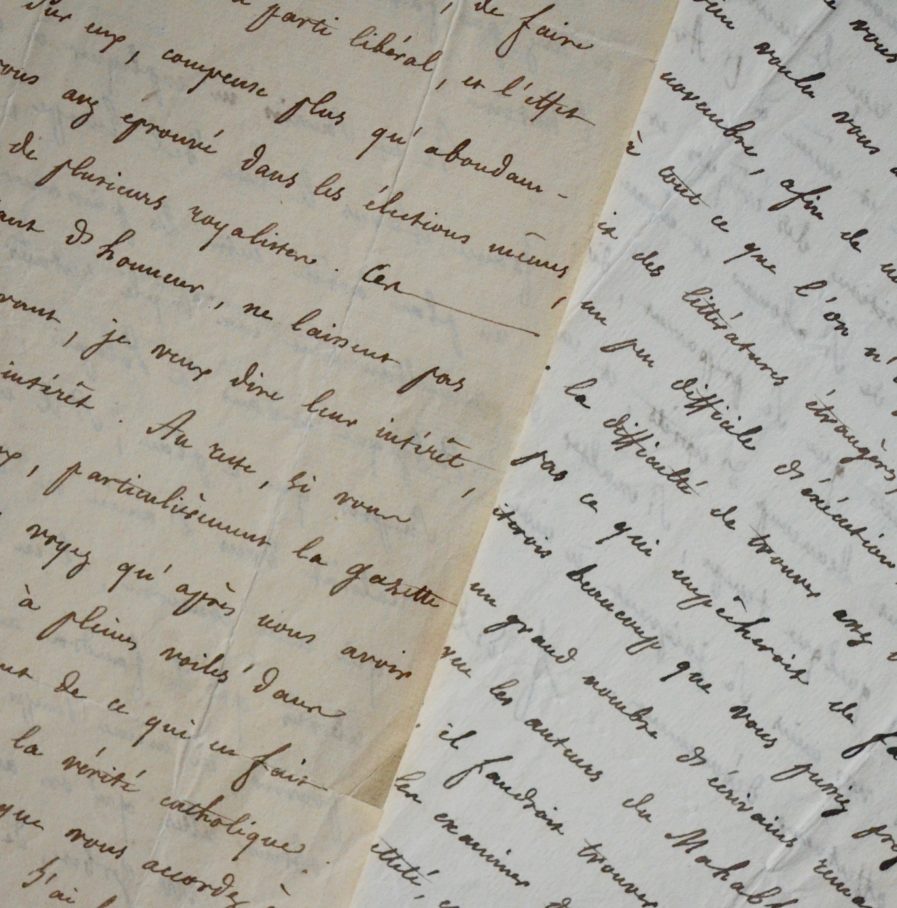 parti libéral, de faire
sur eux, compense plus et l'effet
vous avez éprouvé qu'abondam-
de plusieurs dans les élections mêmes,
royalistes. Ces
d'honneur, ne laissent pas
je veux dire leur intérêt,
intérêt. Au reste, si vous
particulièrement la gazette
voyez qu'après nous avoir
à pleines voiles dans
de ce qui en fait
la vérité catholique.
que vous accordez à
J'ai
vous
voulu vous
novembre, afin de
à tout ce que l'on n'
des littératures étrangères,
un peu difficile d'exécution,
la difficulté de trouver assez
pas ce qui empêcheroit de
beaucoup que vous puissiez
un grand nombre d'écrivains
que les auteurs du Mahab
il faudroit trouver
les examiner